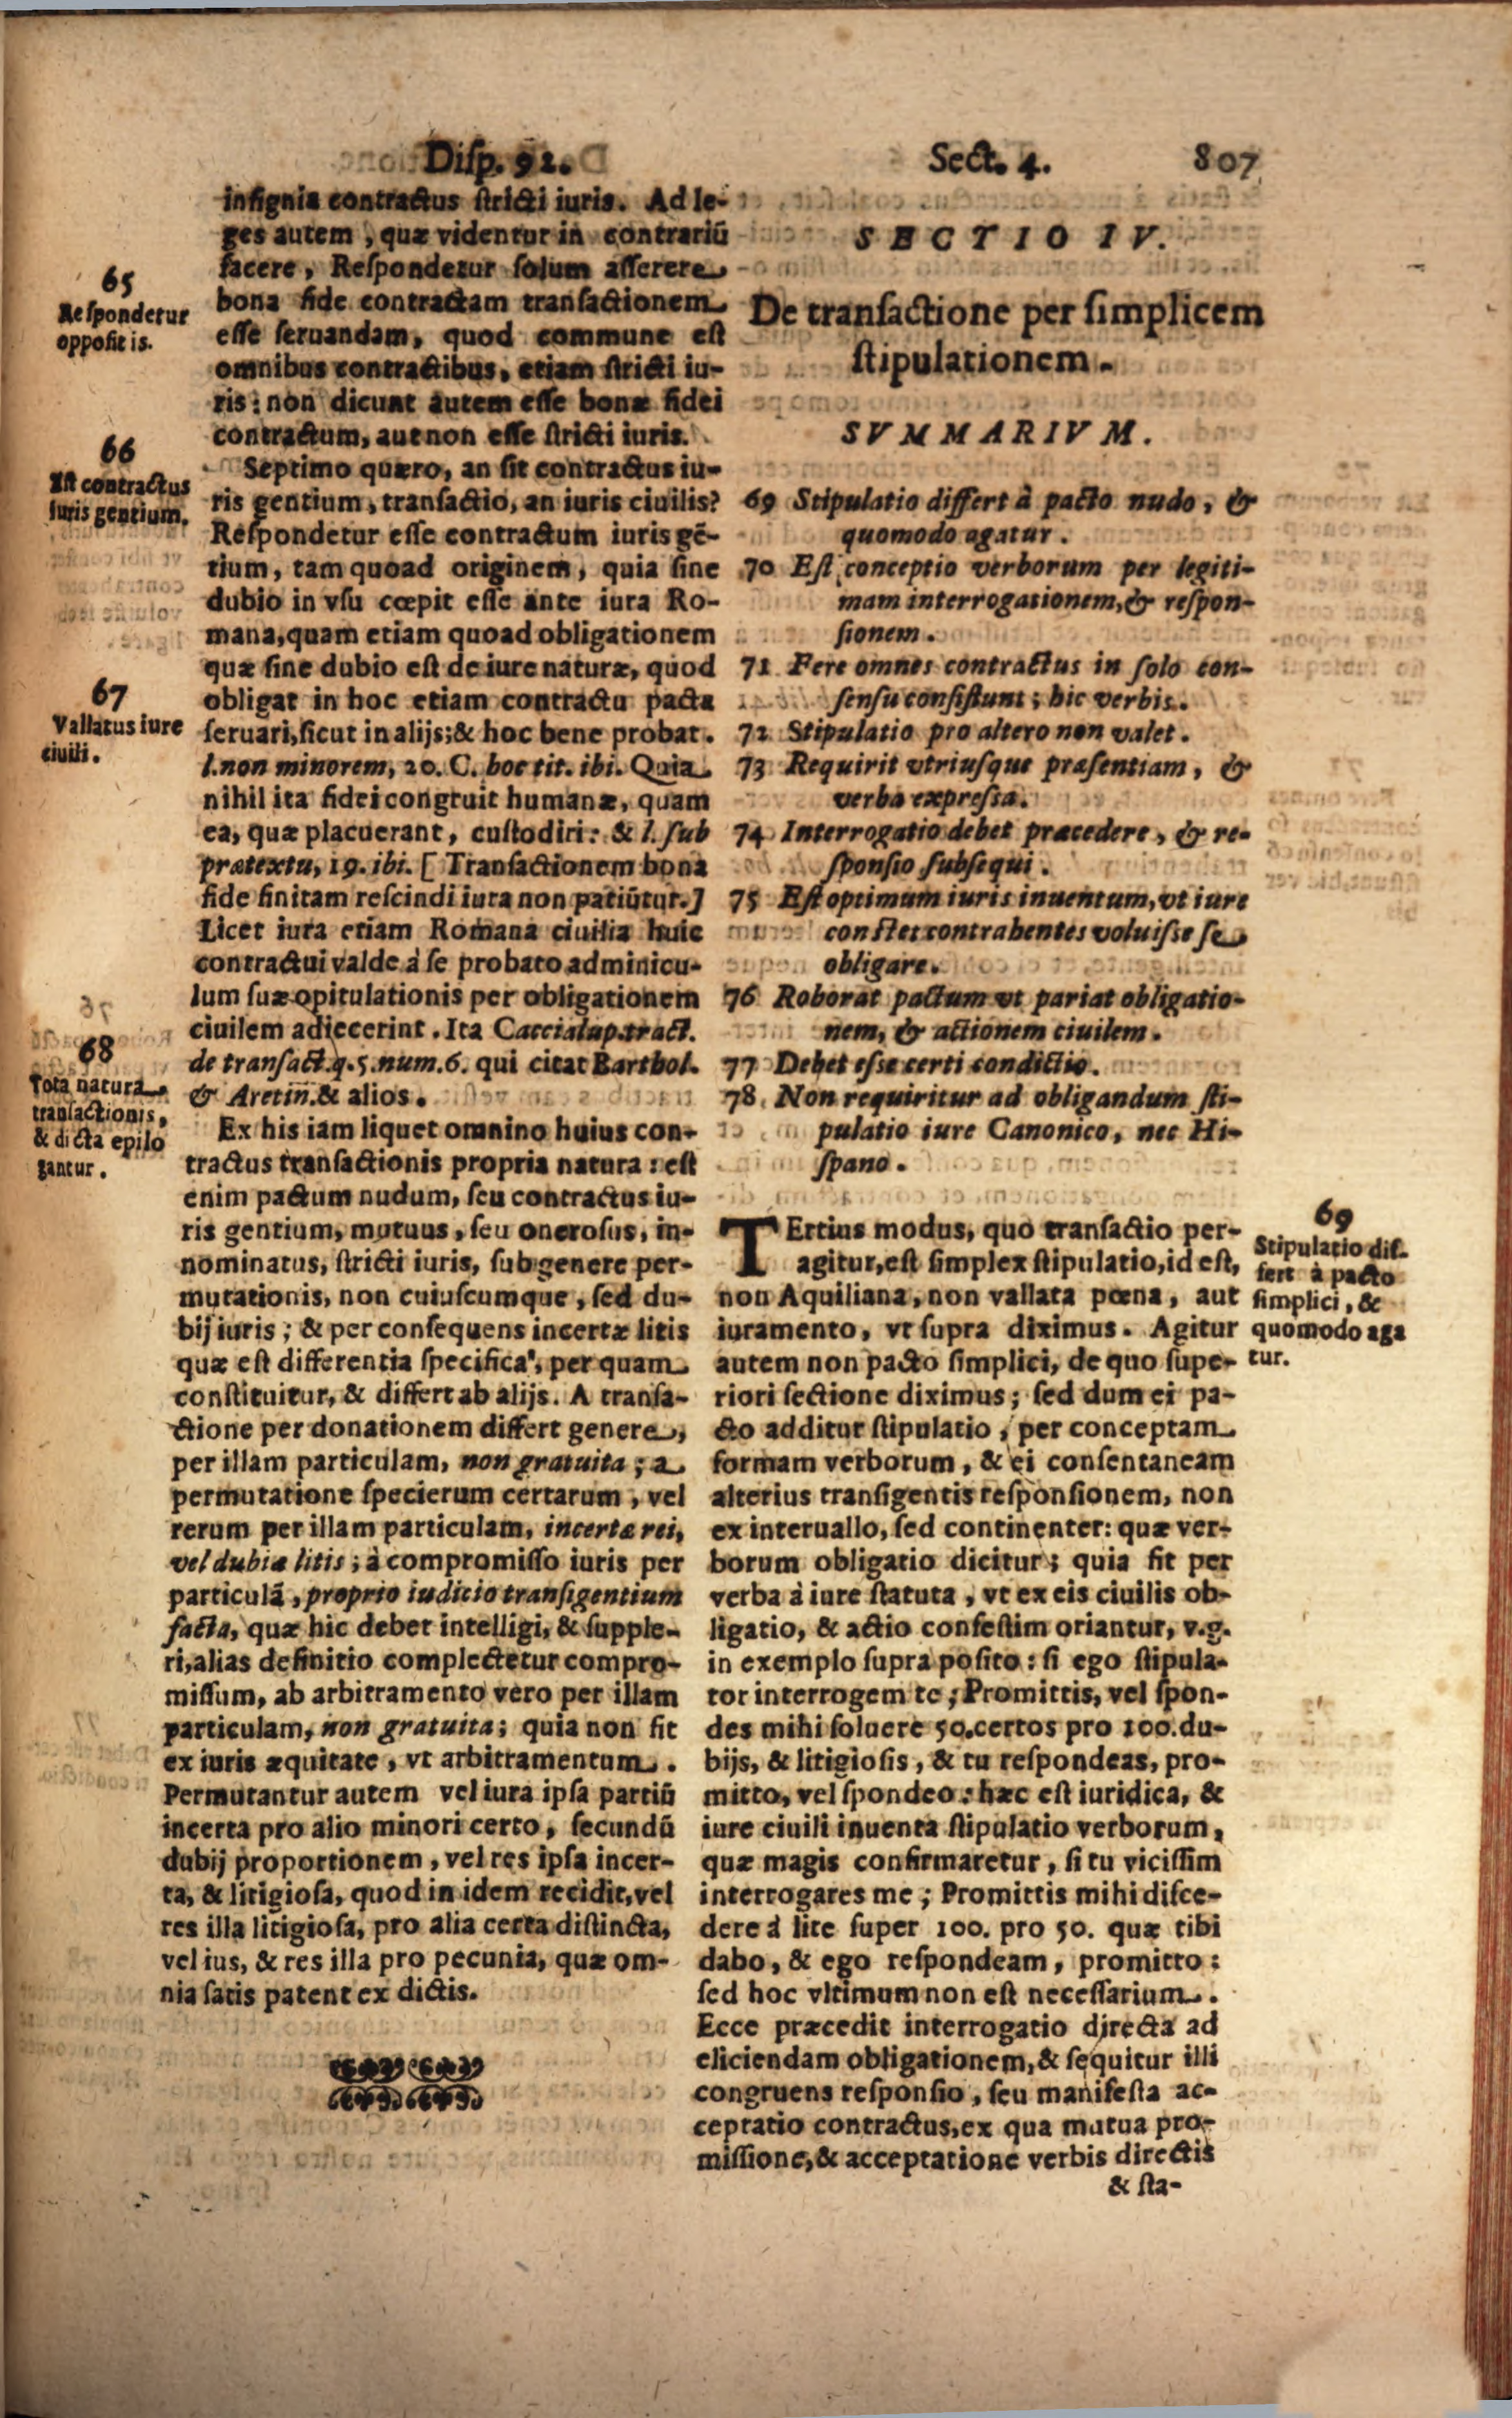 Disp. 92. Sect. 4. 807
insignia contractus stricti iuris. Ad le-
ges autem, quæ videntur in contrariũ
facere, Respondetur solum asserere
bona fide contractam transactionem
esse seruandam, quod commune est
omnibus contractibus, etiam stricti iu-
ris: non dicunt autem esse bonæ fidei
contractum, aut non esse stricti iuris.
Septimo quæro, an sit contractus iu-
ris gentium, transactio, an iuris ciuilis?
Respondetur esse contractum iuris gē-
tium, tam quoad originem, quia sine
dubio in vsu cœpit esse ante iura Ro-
mana, quam etiam quoad obligationem
quæ sine dubio est de iure naturæ, quod
obligat in hoc etiam contractu pacta
seruari, sicut in alijs; & hoc bene probat.
l. non minorem, 20. C. hoc tit. ibi. Quia
nihil ita fidei congruit humanæ, quam
ea, quæ placuerant, custodiri: & l. sub
prætextu, 19. ibi. [ Transactionem bona
fide finitam rescindi iura non patiũtur.]
Licet iura etiam Romana ciuilia huic
contractui valde à se probato adminicu-
lum suæ opitulationis per obligationem
ciuilem adiecerint. Ita Caccialup. tract.
de transact. q. 5. num. 6. qui citat Barthol.
& Aretin. & alios.
Ex his iam liquet omnino huius con-
tractus transactionis propria natura: est
enim pactum nudum, seu contractus iu-
ris gentium, mutuus, seu onerosus, in-
nominatus, stricti iuris, sub genere per-
mutationis, non cuiuscumque, sed du-
bij iuris; & per consequens incertæ litis
quæ est differentia specifica, per quam
constituitur, & differt ab alijs. A transa-
ctione per donationem differt genere,
per illam particulam, non gratuita; a
permutatione specierum certarum, vel
rerum per illam particulam, incertæ rei,
vel dubiæ litis; à compromisso iuris per
particulã, proprio iudicio transigentium
facta, quæ hic debet intelligi, & supple-
ri, alias definitio complectetur compro-
missum, ab arbitramento vero per illam
particulam, non gratuita; quia non fit
ex iuris æquitate, vt arbitramentum.
Permutantur autem vel iura ipsa partiũ
incerta pro alio minori certo, secundũ
dubij proportionem, vel res ipsa incer-
ta, & litigiosa, quod in idem recidit, vel
res illa litigiosa, pro alia certa distincta,
vel ius, & res illa pro pecunia, quæ om-
nia satis patent ex dictis.
65
Respondetur
oppositis.
66
Est contractus
iuris gentium.
67
Vallatus iure
ciuili.
68
Tota natura
transactionis,
& dicta epilo
gantur.
SECTIO IV.
De transactione per simplicem
stipulationem.
SVMMARIVM.
69 Stipulatio differt à pacto nudo, &
quomodo agatur.
70 Est conceptio verborum per legiti-
mam interrogationem, & respon-
sionem.
71 Fere omnes contractus in solo con-
sensu consistunt; hic verbis.
72 Stipulatio pro altero non valet.
73 Requirit vtriusque præsentiam, &
verba expressa.
74 Interrogatio debet præcedere, & re-
sponsio subsequi.
75 Est optimum iuris inuentum, vt iure
constet contrahentes voluisse se
obligare.
76 Roborat pactum vt pariat obligatio-
nem, & actionem ciuilem.
77 Debet esse certi condictio.
78 Non requiritur ad obligandum sti-
pulatio iure Canonico, nec Hi-
spano.
TErtius modus, quo transactio per-
agitur, est simplex stipulatio, id est,
non Aquiliana, non vallata pœna, aut
iuramento, vt supra diximus. Agitur
autem non pacto simplici, de quo supe-
riori sectione diximus; sed dum ei pa-
cto additur stipulatio, per conceptam
formam verborum, & ei consentaneam
alterius transigentis responsionem, non
ex interuallo, sed continenter: quæ ver-
borum obligatio dicitur; quia fit per
verba à iure statuta, vt ex eis ciuilis ob-
ligatio, & actio confestim oriantur, v.g.
in exemplo supra posito: si ego stipula-
tor interrogem te; Promittis, vel spon-
des mihi soluere 50. certos pro 100. du-
bijs, & litigiosis, & tu respondeas, pro-
mitto, vel spondeo: hæc est iuridica, &
iure ciuili inuenta stipulatio verborum,
quæ magis confirmaretur, si tu vicissim
interrogares me; Promittis mihi disce-
dere à lite super 100. pro 50. quæ tibi
dabo, & ego respondeam, promitto:
sed hoc vltimum non est necessarium.
Ecce præcedit interrogatio directa ad
eliciendam obligationem, & sequitur illi
congruens responsio, seu manifesta ac-
ceptatio contractus, ex qua mutua pro-
missione, & acceptatione verbis directis
& sta-
69
Stipulatio dif-
fert à pacto
simplici, &
quomodo aga
tur.